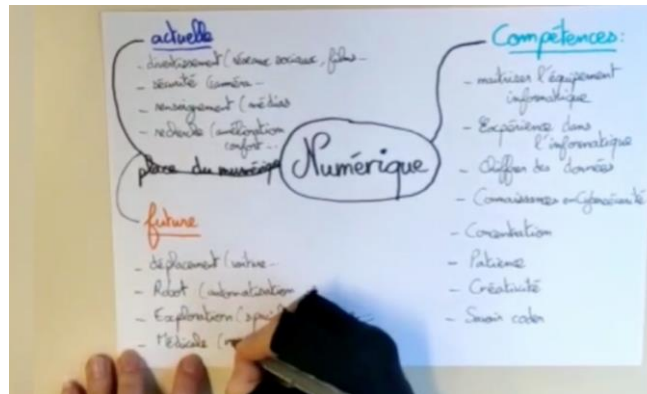 actuelle
- divertissement (réseaux sociaux, films...
- sécurité (caméra...
- renseignement (médias
- recherche (amélioration
confort...
place du numérique
Numérique
future
- déplacement (voiture...
- Robot (automatisation
- Exploration (spa
- Médicale (
Compétences:
- maitriser l'équipement
informatique
- Expérience dans
l'informatique
- Chiffrer des données
- Connaissances en Cybersécurité
- Concentration
- Patience
- Créativité
- Savoir coder